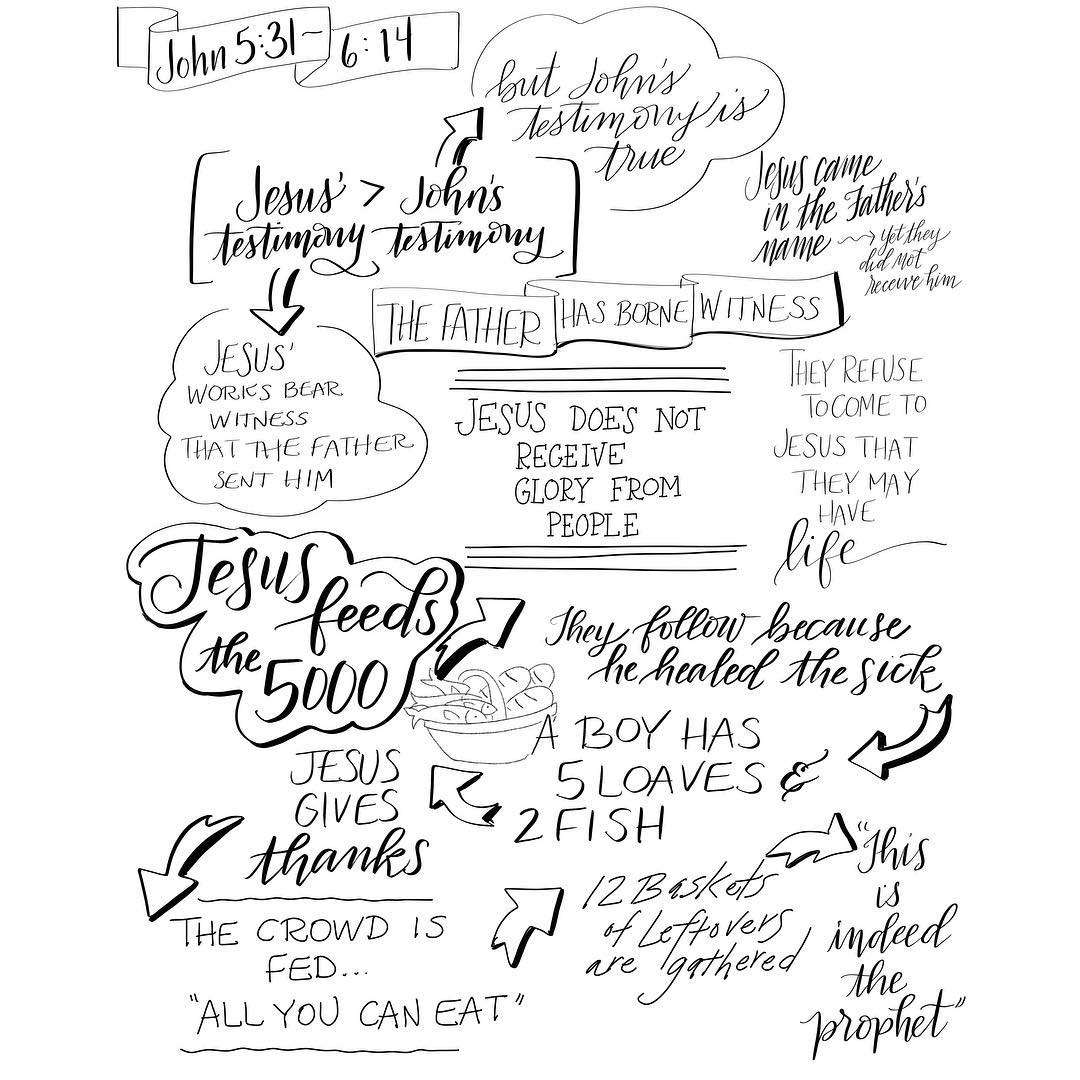 John 5:31~
6:14
but John's
testimony is
true
Jesus' > John's
testimony testimony
Jesus came
in the Father's
name → yet they
did not
receive him
THE FATHER HAS BORNE WITNESS
JESUS'
WORKS BEAR
WITNESS
THAT THE FATHER
SENT HIM
JESUS DOES NOT
RECEIVE
GLORY FROM
PEOPLE
THEY REFUSE
TO COME TO
JESUS THAT
THEY MAY
HAVE
life
Jesus
feeds
the
5000
They follow because
he healed the sick
A BOY HAS
5 LOAVES &
2 FISH
JESUS
GIVES
thanks
THE CROWD IS
FED...
"ALL YOU CAN EAT"
12 Baskets
of Leftovers
are gathered
"This
is
indeed
the
prophet"